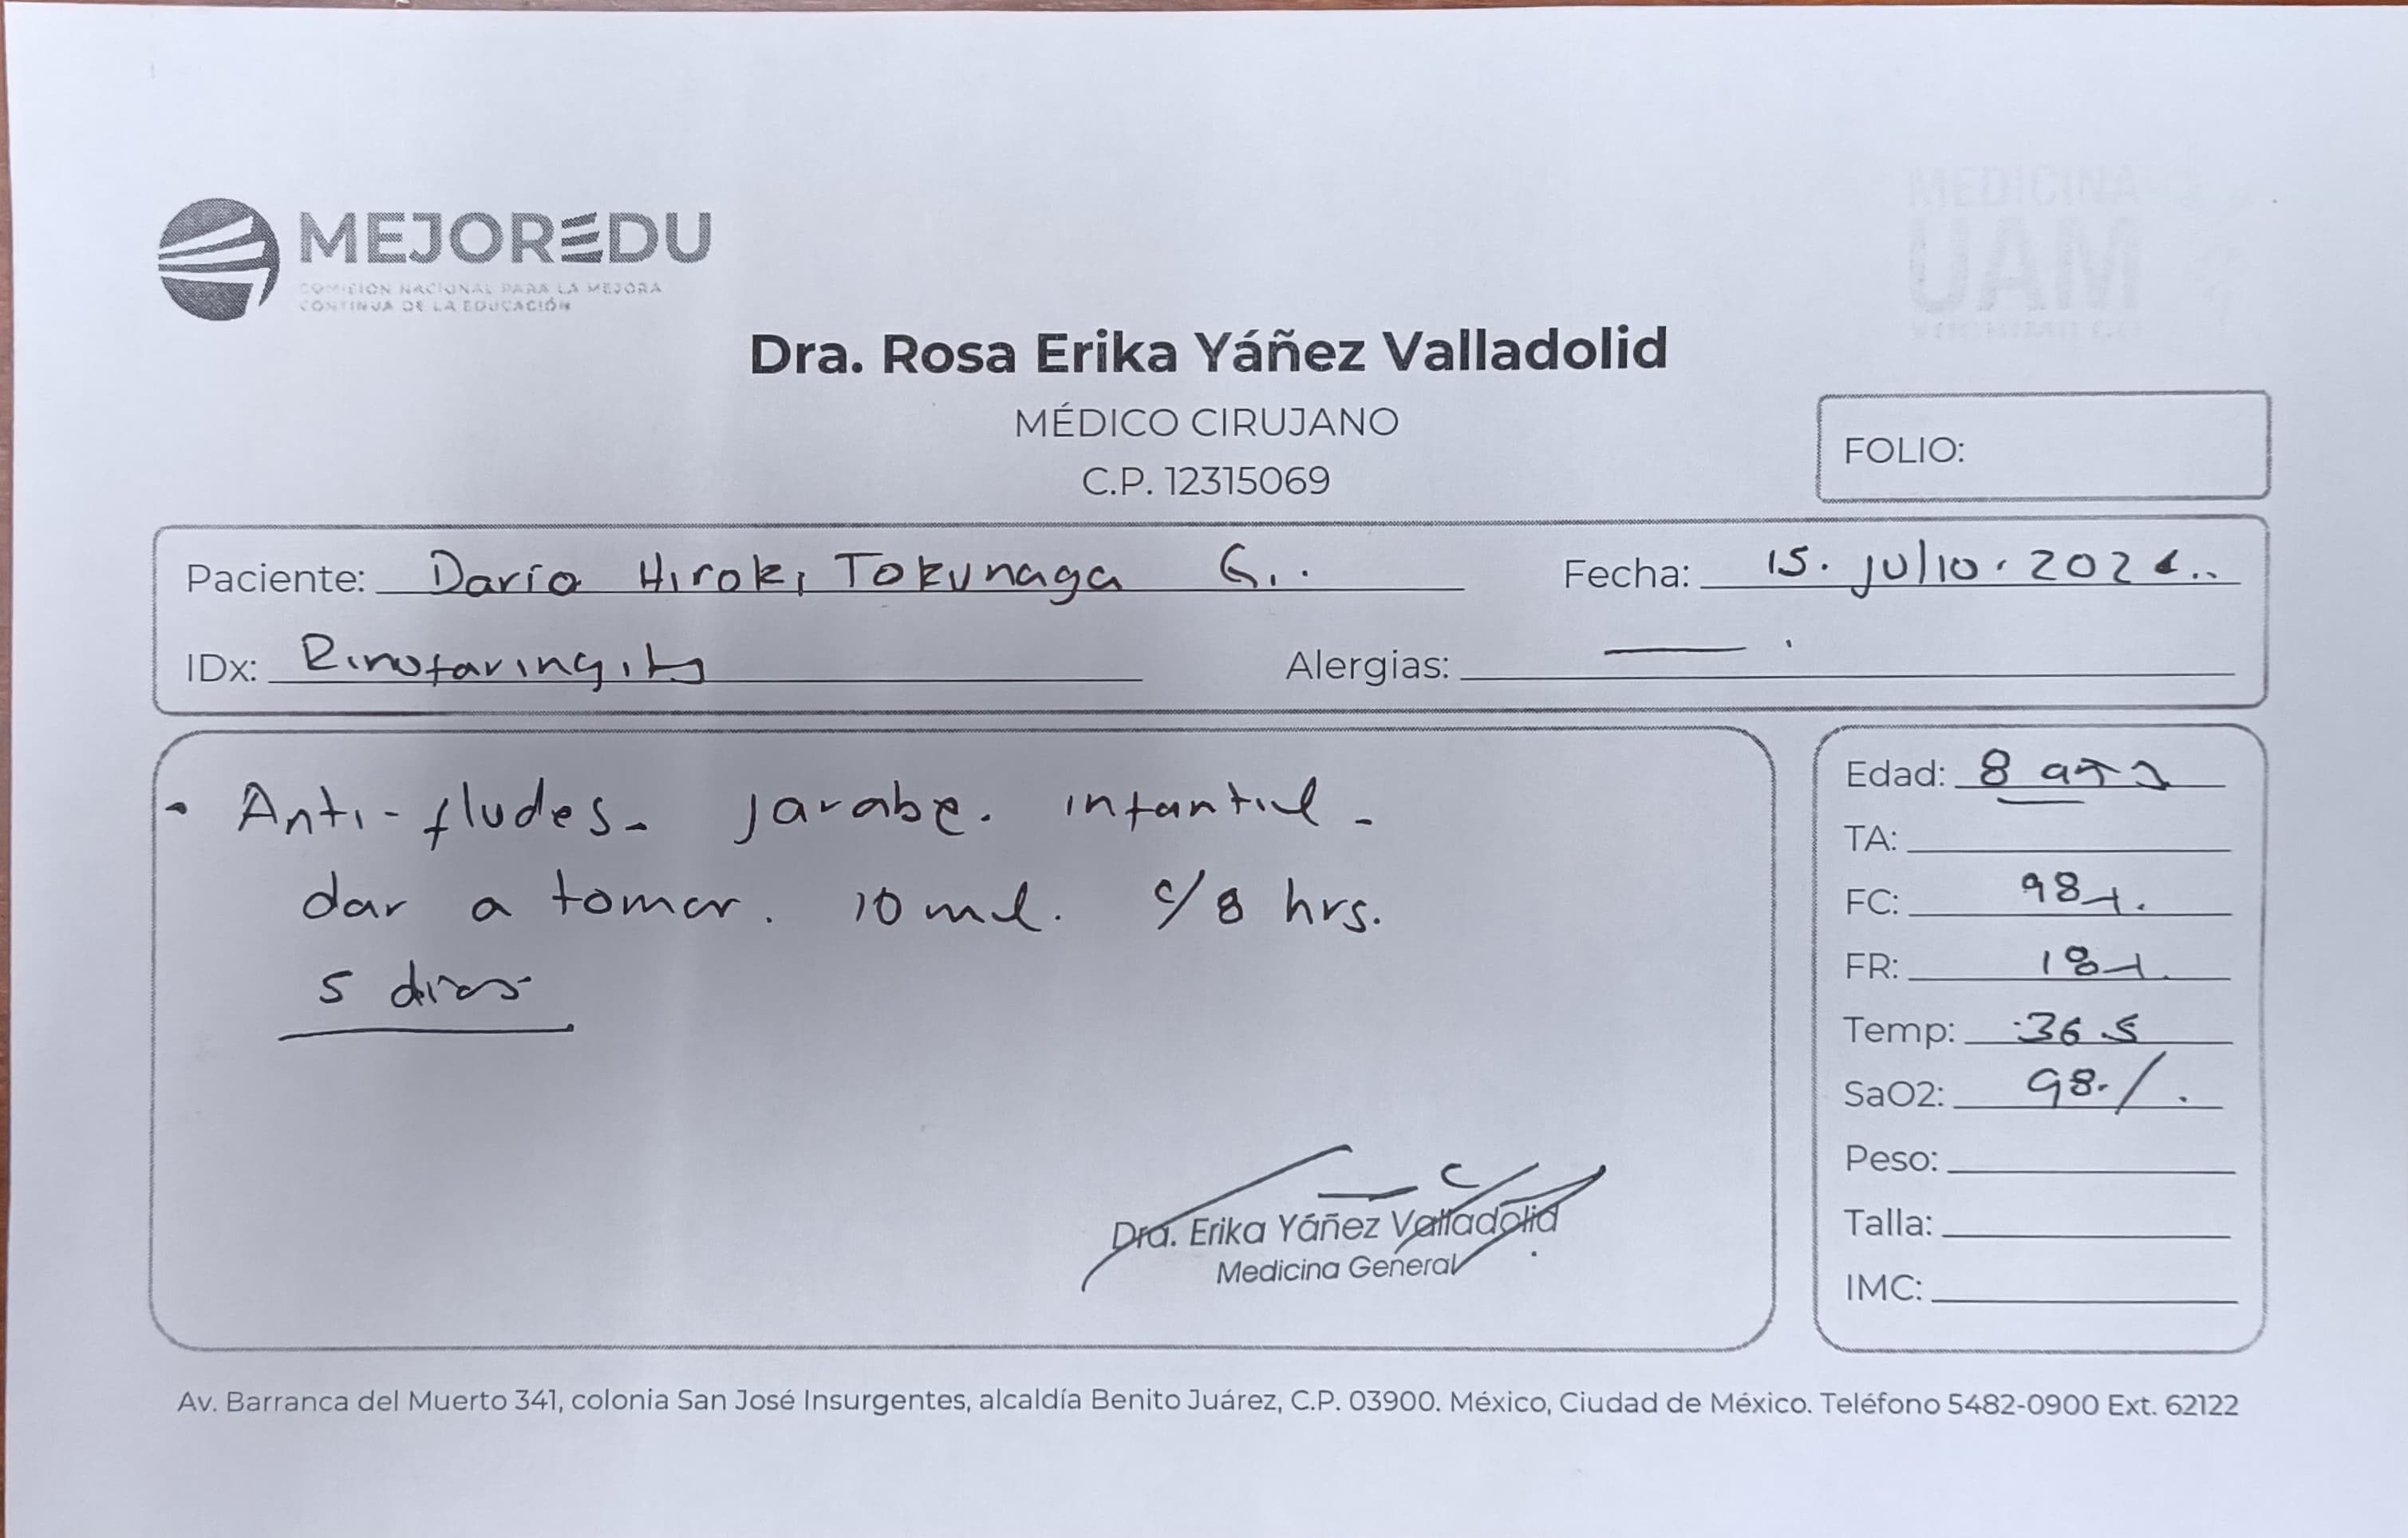 MEJOREDU
COMISIÓN NACIONAL PARA LA MEJORA
CONTINUA DE LA EDUCACIÓN
MEDICINA
UAM
Dra. Rosa Erika Yáñez Valladolid
MÉDICO CIRUJANO
C.P. 12315069
FOLIO:
Paciente: Darío Hiroki Tokunaga G.. Fecha: 15. julio. 202
IDx: Rinofaringitis Alergias: — .
- Anti-fludes- jarabe. infantil -
dar a tomar. 10 ml. c/8 hrs.
5 dias
Dra. Erika Yáñez Valladolid
Medicina General
Edad: 8 años
TA:
FC: 98
FR: 18
Temp: 36.5
SaO2: 98%.
Peso:
Talla:
IMC:
Av. Barranca del Muerto 341, colonia San José Insurgentes, alcaldía Benito Juárez, C.P. 03900. México, Ciudad de México. Teléfono 5482-0900 Ext. 62122